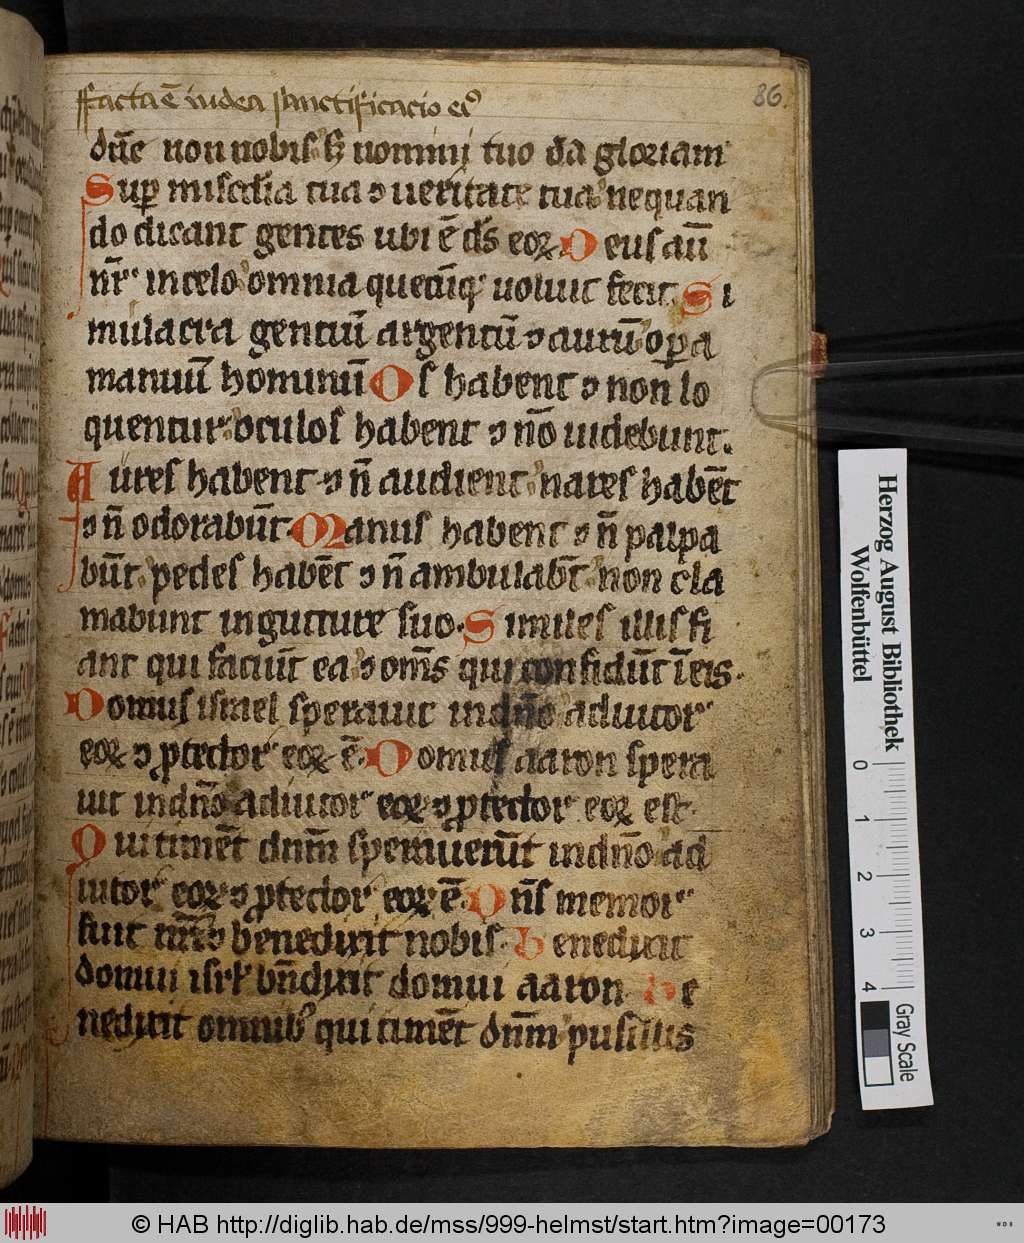 ffacta ē iudea sanctificacio eiꝰ
86.
dn̄e non nobis sꝫ nomini tuo da gloriam
Suꝑ misc̄dia tua ⁊ ueritate tua ne quan
do dicant gentes ubi ē ds̄ eoꝝ Deus aūt
nr̄ in celo omnia quecūqꝫ uoluit fecit Si
mulacra genciū argentū ⁊ aurū oꝑa
manuū hominū Os habent ⁊ non lo
quentur oculos habent ⁊ nō uidebunt.
Aures habent ⁊ n̄ audient nares habēt
⁊ n̄ odorabūt Manus habent ⁊ n̄ palpa
būt pedes habēt ⁊ n̄ ambulabūt non cla
mabunt in gutture suo Similes illis fi
ant qui faciūt ea ⁊ oms̄ qui confidūt ī eis.
Domus israel sperauit in dn̄o adiutor
eoꝝ ⁊ ꝓtector eoꝝ ē. Domus aaron spera
uit in dn̄o adiutor eoꝝ ⁊ ꝓtector eoꝝ est.
Qui timēt dnm̄ sperauerūt in dn̄o ad
iutor eoꝝ ⁊ ꝓtector eoꝝ ē. Dn̄s memor
fuit nr̄i ⁊ benedixit nobis. Benedixit
domui isrl̄ bn̄dixit domui aaron Be
nedixit omnibꝰ qui timēt dnm̄ pusillis
Herzog August Bibliothek
Wolfenbüttel
0 1 2 3 4
Gray Scale
© HAB http://diglib.hab.de/mss/999-helmst/start.htm?image=00173
WDB